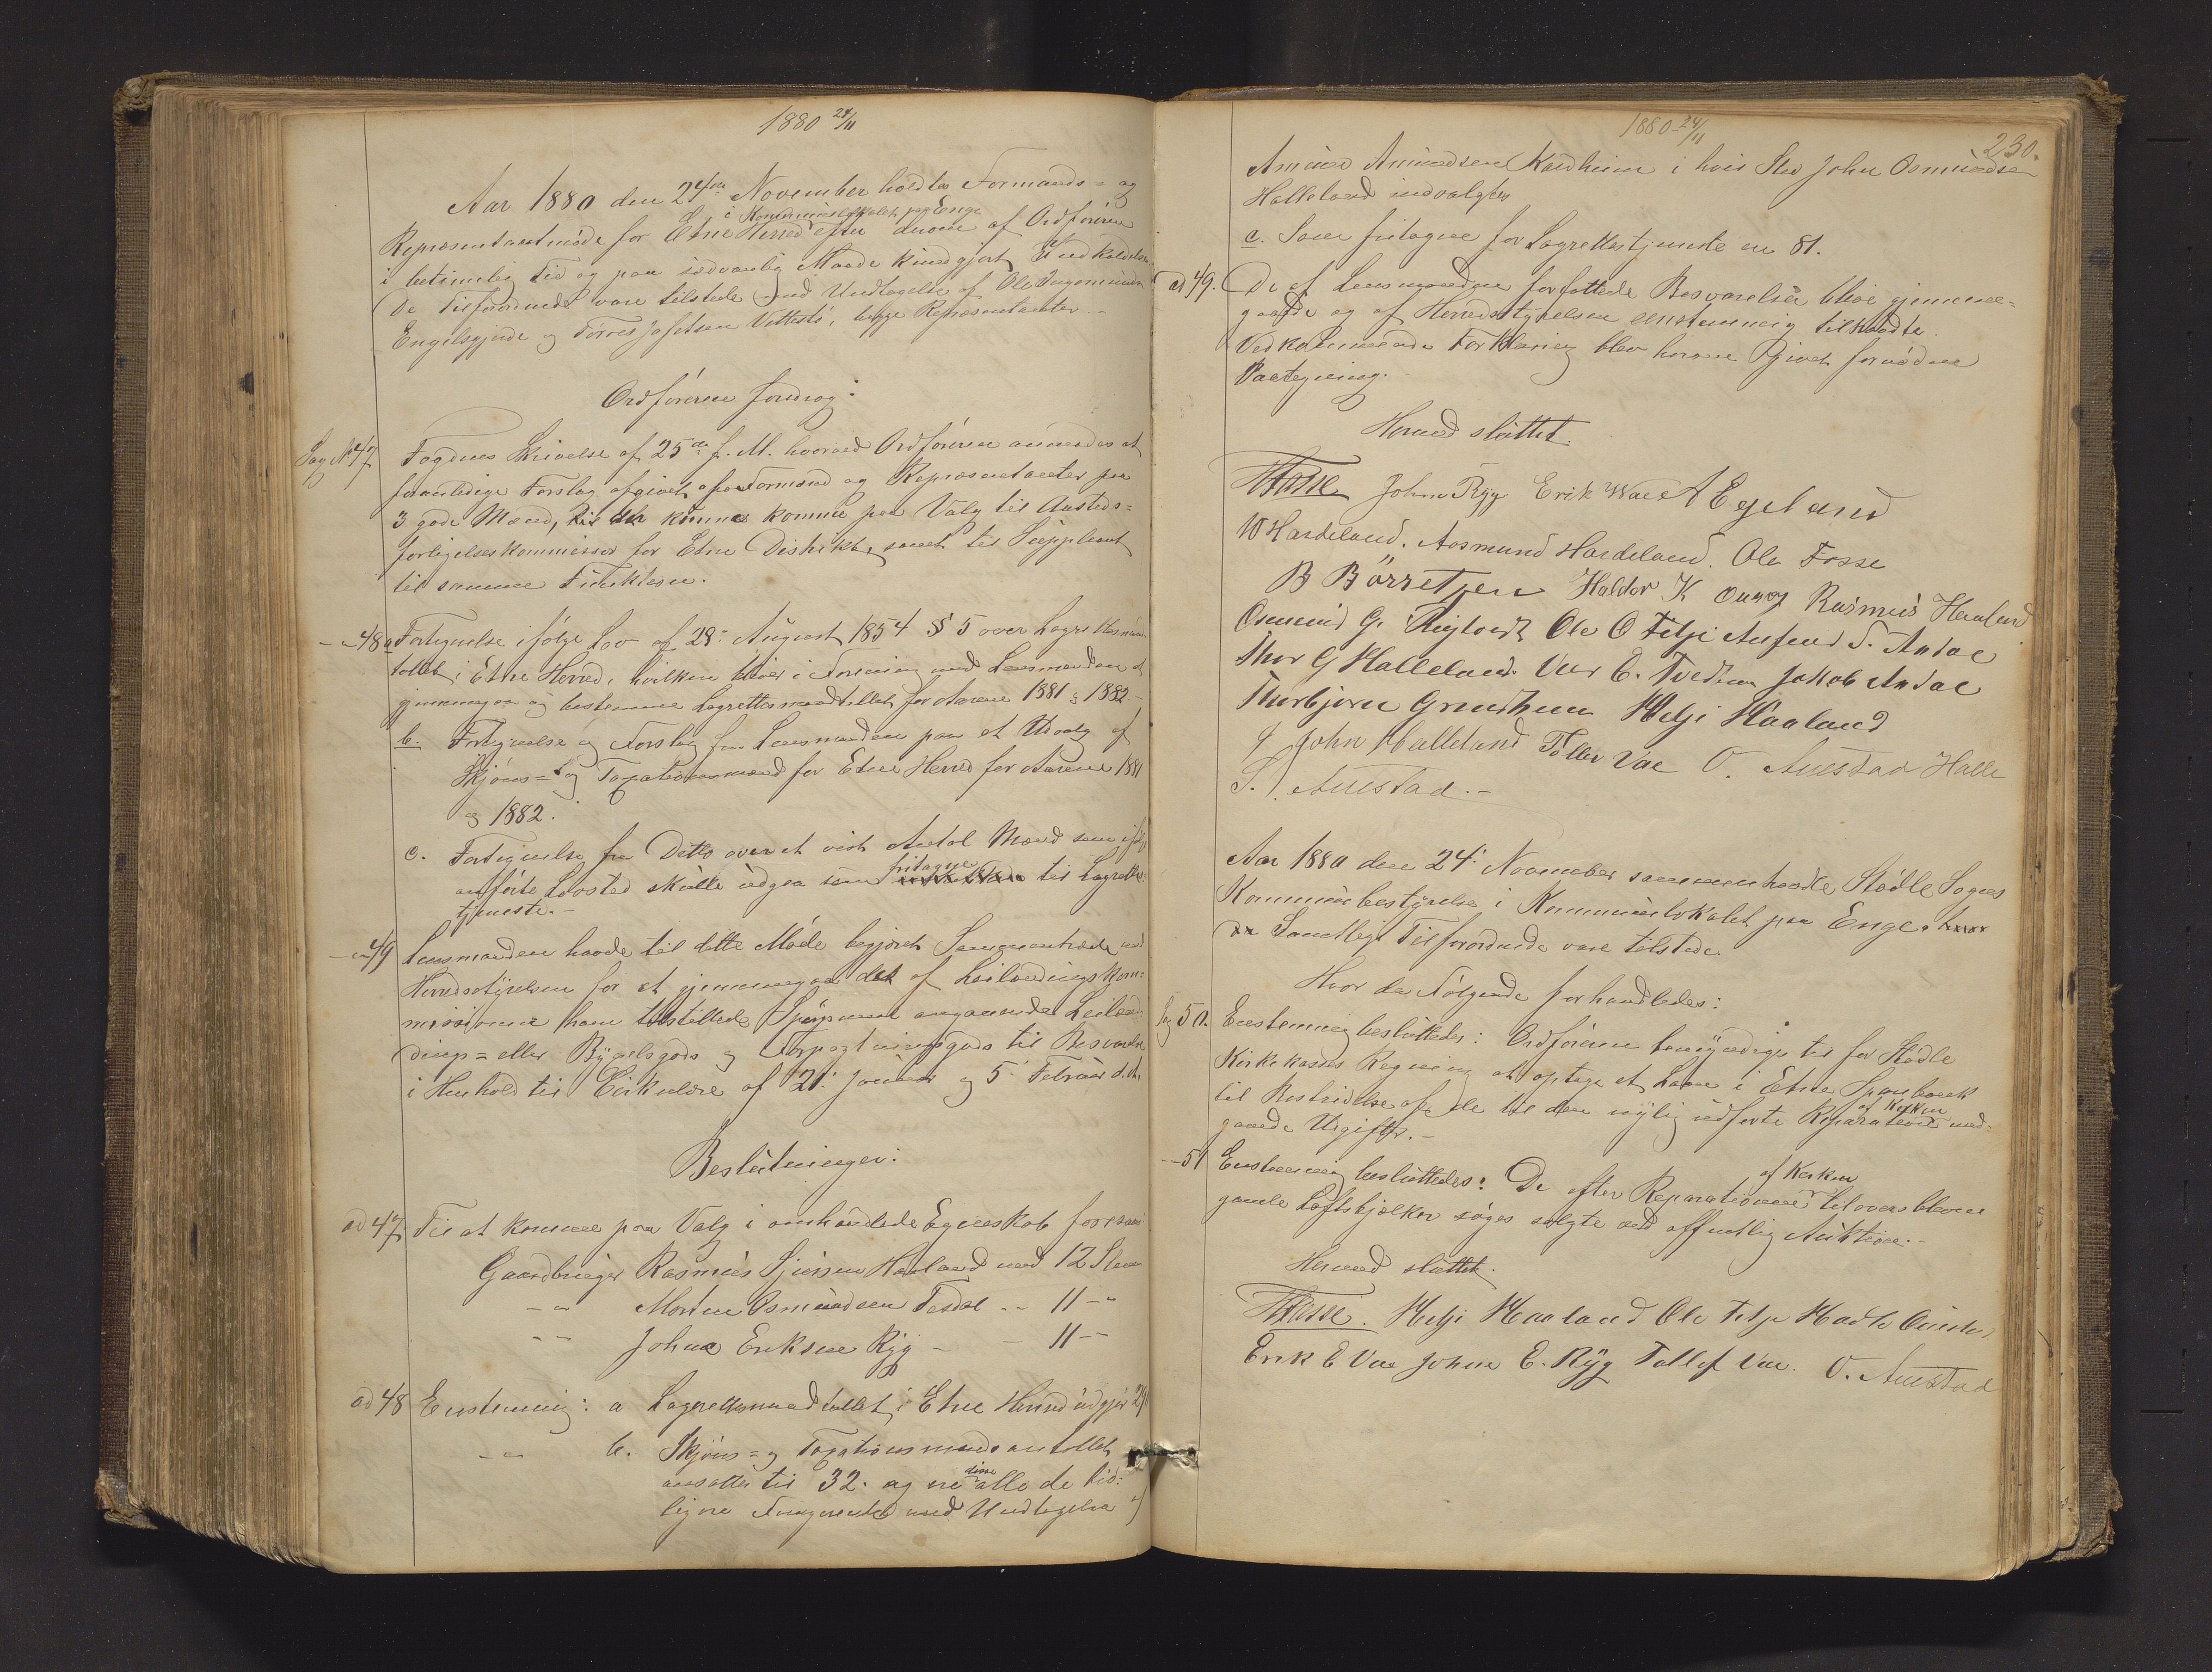 1880 24/11
Aar 1880 den 24de November holdtes Formands- og
i Kommunelokalet paa Enge
Repræsentantmøde for Etne Herred efter derom af Ordføreren
i betimelig Tid og paa sædvanlig Maade kundgjort Indkaldelse.
De Tilforordnede vare tilstede med Undtagelse af Ole Ingemundsen
Engelsgjerde og Tørres Josefsen Vettestø, begge Repræsentanter.-
Ordføreren foredrog:
Sag No 47
Fogdens Skrivelse af 25de f. M. hvorved Ordføreren anmodes at
foranledige Forslag afgivet af Formænd og Repræsentanter paa
3 gode Mænd, der kunne komme paa Valg til Austeds-
forligelseskommissær for Etne Distrikt, samt til Supleant
til samme Funktion.
- 48 a Fortegnelse ifølge Lov af 28: August 1854 § 5 over Lagrettesmands-
tallet i Etne Herred, hvilken bliver i Forening med Lensmanden at
gjennemgaa og bestemme Lagrettesmandtallet for Aarene 1881 & 1882.-
b. Fortegnelse og Forslag fra Lensmanden paa et Udvalg af
Skjøns- og Taxationsmænd for Etne Herred for Aarene 1881
og 1882.
c. Fortegnelse fra Ditto over et vist Antal Mænd som ifølge
anførte Lovsted skulle udgaa som fritagne til Lagrettes-
tjeneste.-
- 49 Lensmanden havde til dette Møde begjæret Sammentræde med
Herredsstyrelsen for at gjennemgaa det af Leilændingskom-
missionen ham tilstillede Spørgsmaal angaaende Leilæn-
dings- eller Bygselsgods og Forpagtningsgods til Besvarelse
i Henhold til Cirkulære af 21: Januar og 5: Februar d. A.
Beslutninger:
ad 47 Til at komme paa Valg i omhandlede Egenskab foresloges
Gaardbruger Rasmus Sjursen Haaland med 12 Stemmer
- " - Morten Osmundsen Tesdal - - 11 - "
- " - Johne Eriksen Ryg - - 11 - -
ad 48 Enstemmig: a Lagrettesmandtallet i Etne Herred udgjør 291
- " - b. Skjøns- og Taxationsmændsantallet
ansattes til 32. og ere disse alle de tid-
ligere Fungerende med Undtagelse af
1880 24/11
230.
Amund Amundsen Kaldheim i hvis Sted John Osmundsen
Halleland indvalgtes
c. Som fritagne for Lagrettestjeneste ere 81.
ad 49. De af Lensmanden forfattede Besvarelser bleve gjennem-
gaaede og af Herredsstyrelsen enstemmig tiltraadte.
Vedkommende Forklaring blev herom givet fornøden
Paategning.
Hermed sluttet.
Fosse John Ryg Erik Vae A Egeland
W Hardeland. Aasmund Hardeland. Ole Fosse
B Børretzen Haldor K Rasmus Haaland
Osmund G. Ole O Felje S. Austad
Thor G Halleland. C. Tvedten Jakob Austad
Thorbjørn Grindheim Helje Haaland
John Halleland Tollev Vae O. Austad Halle
S. Austad.-
Aar 1880 den 24: November sammenholdtes Stødle Sogns
Kommunebestyrelse i Kommunelokalet paa Enge.
Samtlige Tilforordnede vare tilstede.
Hvor da Følgende forhandledes:
Sag 50. Enstemmig besluttedes: Ordføreren bemyndiges til for Stødle
Kirkekasses Regning at optage et Laan i Etne Sparebank
til Bestridelse af de til den nylig udførte Reparation af Kirken med-
gaaede Udgifter.-
- 51 Enstemmig besluttedes: De efter Reparationen af Kirken tiloversblevne
gamle Loftsbjælker søges solgte ved offentlig Auktion.-
Hermed sluttet.
Fosse. Helje Haaland Ole Felje Halle
Erik E Vae Johne E. Ryg Tollef Vae. O. Austad